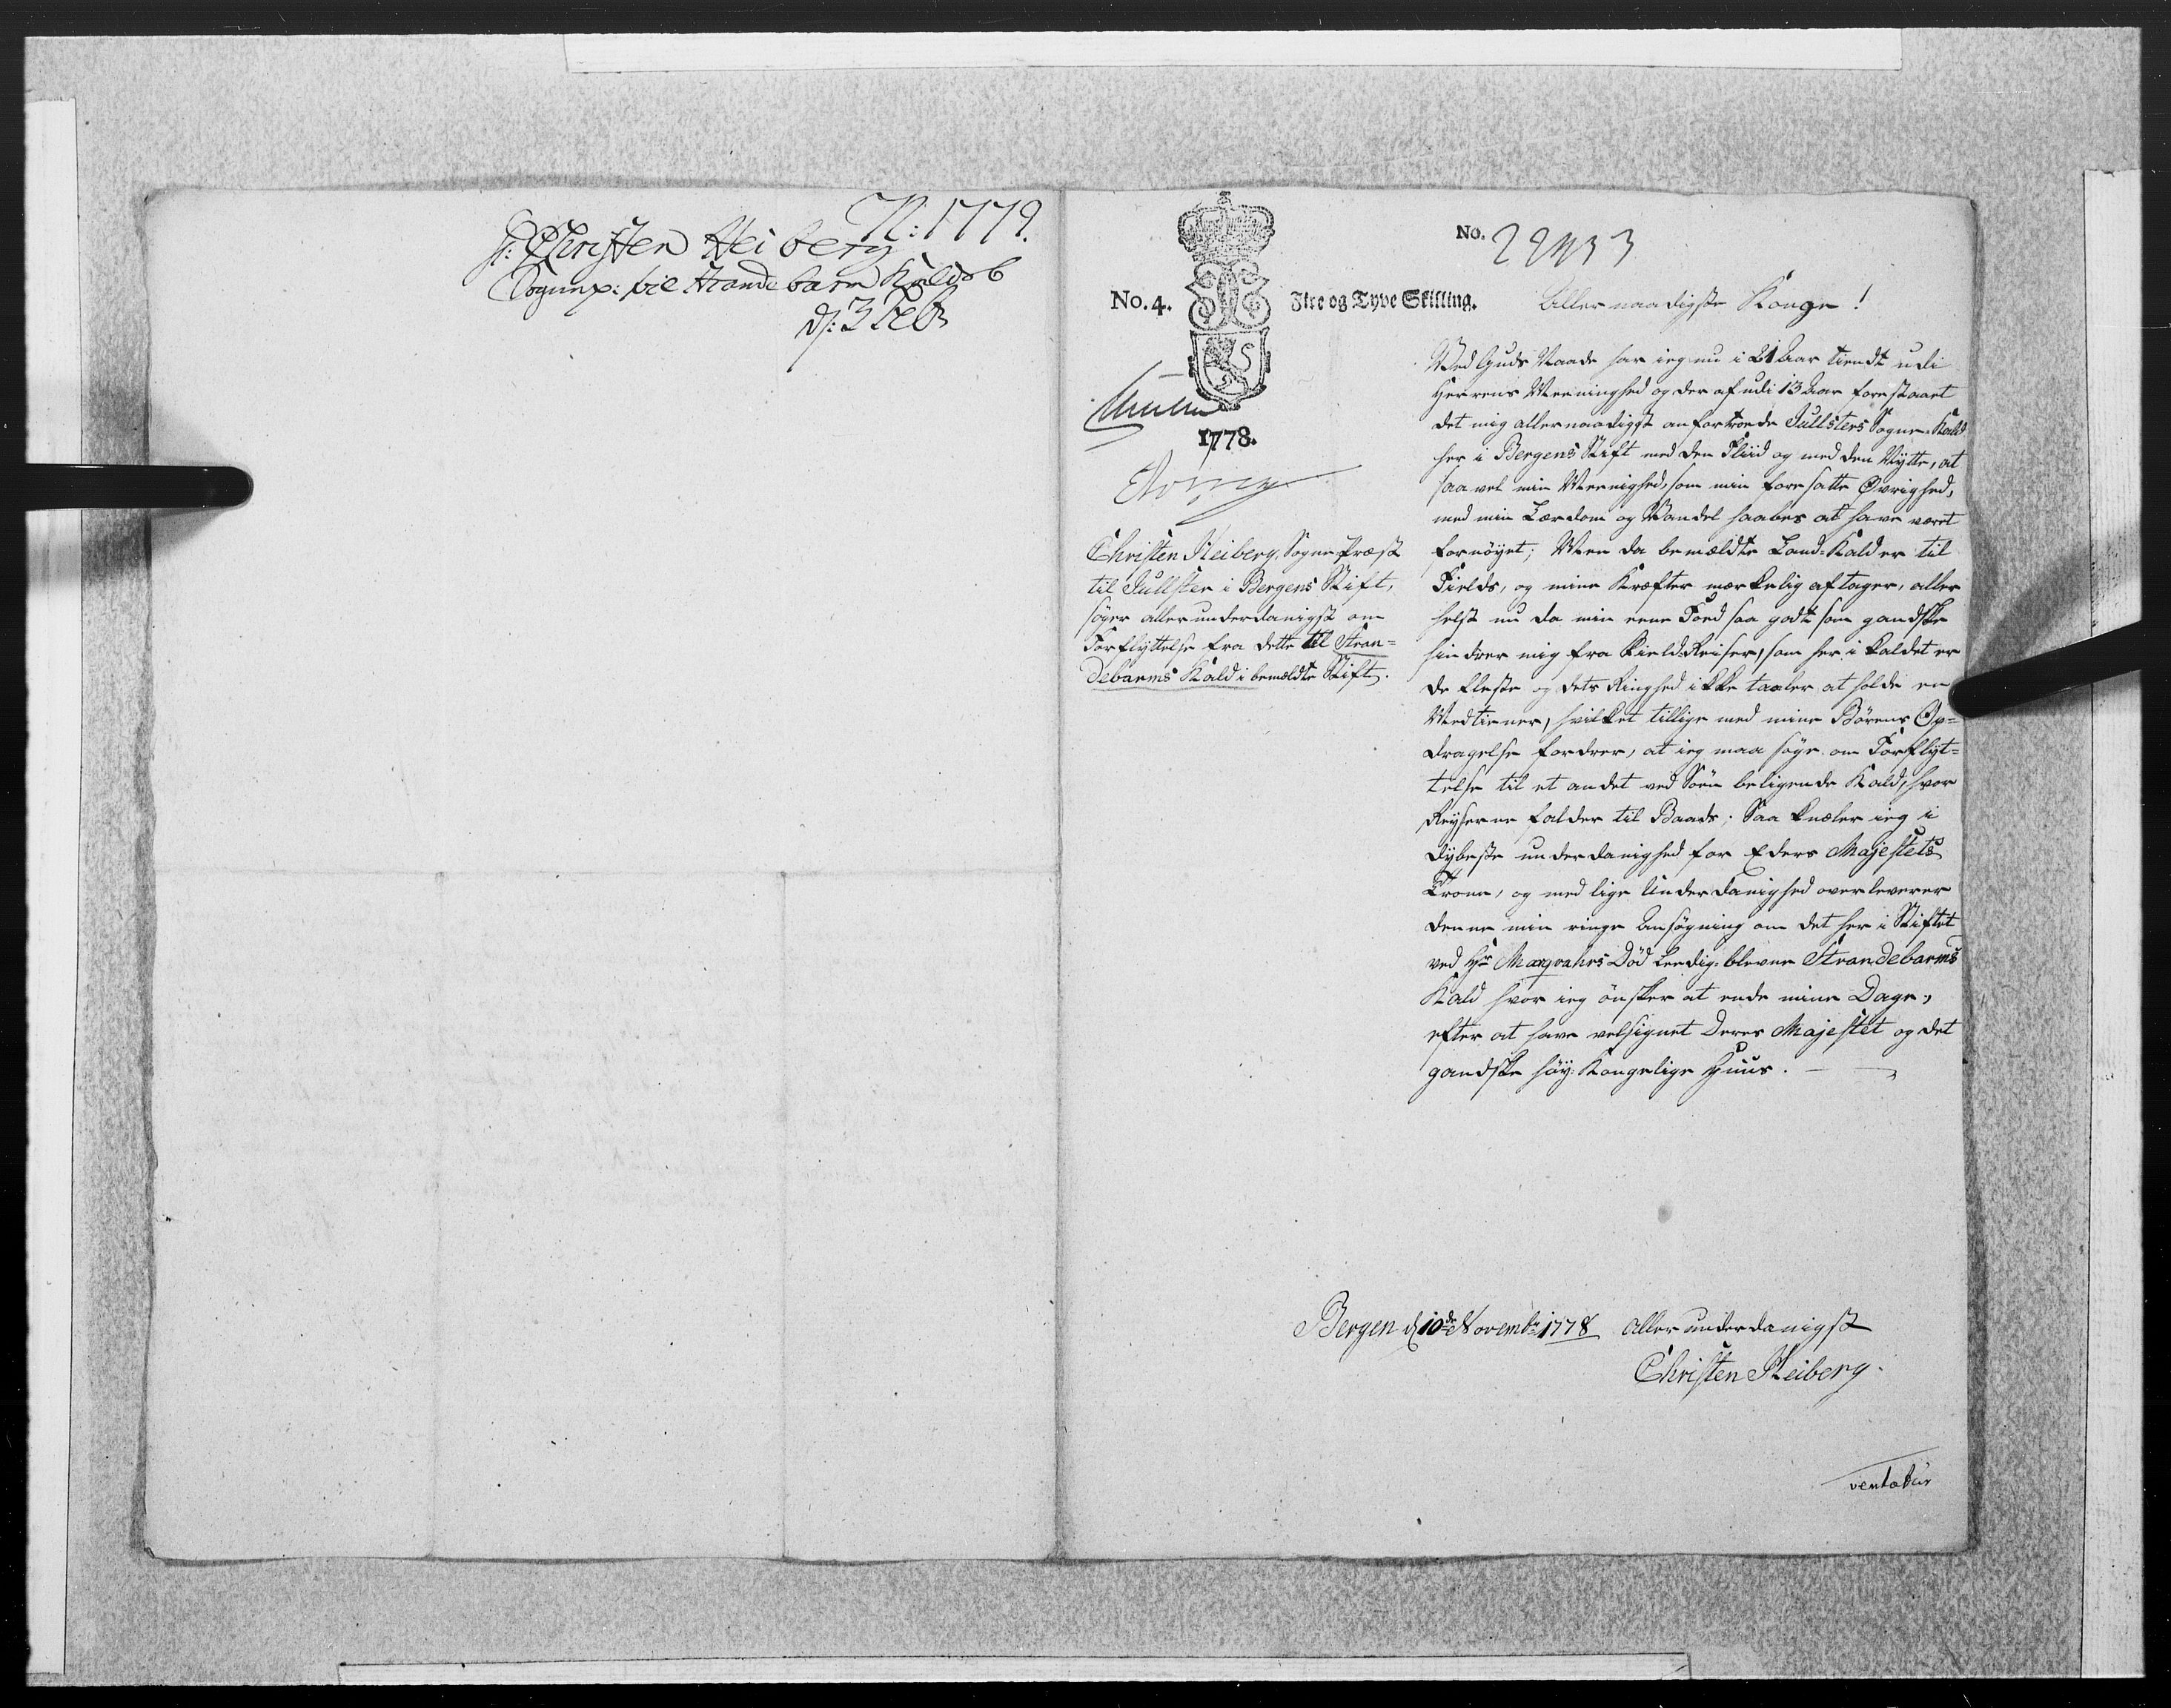 N: 1779.
Hr: Christen Heiberg
Sognep: til Strandebarm Kald
d: 3 Feb
No. 4.
Fire og Tyve Skilling.
1778.
No. 22433
Christen Heiberg, Sogne Præst
til Jullster i Bergens Stift,
søger allerunderdanigst om
Forflyttelse fra dette til Stran=
debarms Kald i bemældte Stift.
Allernaadigste Konge!
Ved Guds Naade har ieg nu i 21 Aar tiendt udi
Herrens Meenighed og der af udi 13 Aar forestaaet
det mig allernaadigst anfortroede Jullsters Sogne-Kald
her i Bergens Stift med den Fliid og med den Nytte, at
saa vel min Meenighed, som min foresatte Øvrighed,
med min Lærdom og Vandel haabes at have været
fornöyet; Men da bemældte Land-Kald er til
Fields, og mine Kræfter mærkelig aftager, aller
helst nu da min eene Foed saa godt som gandske
hindrer mig fra Field-Reiser, som her i Kaldet er
de fleste og dets Ringhed ikke taaler at holde en
Medtiener, hvilket tillige med mine Börens Op=
dragelse fordrer, at ieg maa söge om Forflyt=
telse til et andet ved Söen beligende Kald, hvor
Reyserne falder til Baads; Saa knæler ieg i
dybeste underdanighed for Eders Majestets
Trone, og med lige Underdanighed overleverer
denne min ringe Ansögning om det her i Stiftet
ved Hr Marqvahrs Död Leedig-blevne Strandebarms
Kald hvor ieg önsker at ende mine Dage,
efter at have velsignet Deres Majestet og det
gandske höy-Kongelige Huus.
Bergen d 10de Novembr 1778 allerunderdanigst
Christen Heiberg.